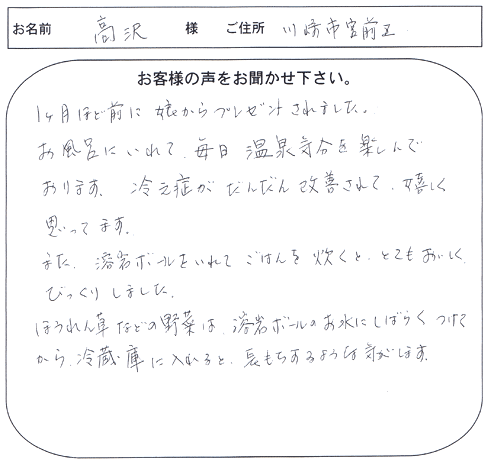 お名前 高沢 様 ご住所 川崎市宮前区
お客様の声をお聞かせ下さい。
1ヶ月ほど前に 娘からプレゼントされました。
お風呂にいれて、毎日 温泉気分を楽しんで
おります。 冷え症が だんだん 改善されて、嬉しく
思ってます。
また、溶岩ボールをいれて ごはんを 炊くと、とてもおいしく、
びっくり しました。
ほうれん草などの野菜は、溶岩ボールのお水にしばらく つけて
から、冷蔵庫に入れると、長もちするような気がします。